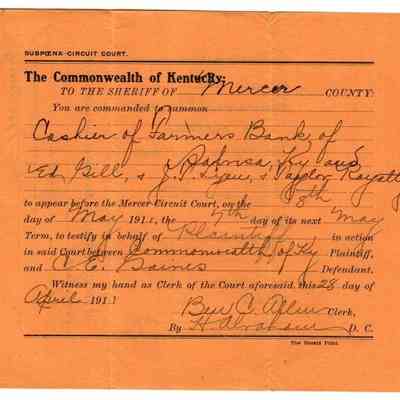 SUBPŒNA-CIRCUIT COURT.
The Commonwealth of Kentucky:
TO THE SHERIFF OF Mercer COUNTY:
You are commanded to summon
Cashier of Farmers Bank of
Salvisa, Ky and
Ed Gill, & J. T. & Taylor
to appear before the Mercer Circuit Court, on the 8th
day of May 191 1, the 7th day of its next May
Term, to testify in behalf of Plaintiff in action
in said Court between Commonwealth of Ky Plaintiff,
and C. E. Defendant.
Witness my hand as Clerk of the Court aforesaid, this 28 day of
April 191 1
Ben C. Allin Clerk,
By H. D. C.
The Herald Print.